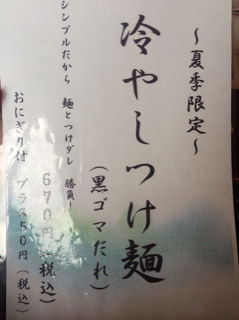 ～夏季限定～
冷やしつけ麺
（黒ゴマだれ）
シンプルだから 麺とつけダレ 勝負！
６７０円（税込）
おにぎり付 プラス５０円（税込）